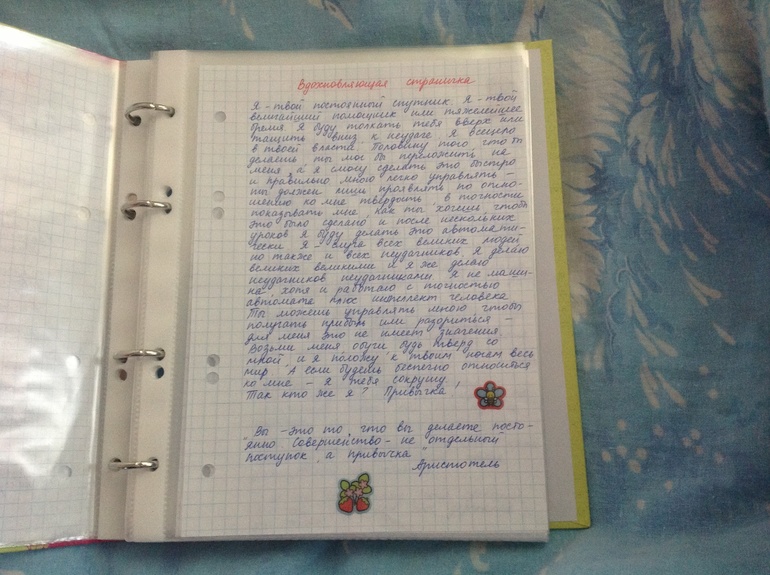 Вдохновляющая страничка
Я - твой постоянный спутник. Я - твой
величайший помощник или тяжелейшее
бремя. Я буду толкать тебя вверх или
тащить вниз к неудаче. Я всецело
в твоей власти. Половину того, что ты
делаешь, ты мог бы переложить на
меня, а я смогу сделать это быстро
и правильно. Мною легко управлять –
ты должен лишь проявлять по отно-
шению ко мне твердость. В точности
показывать мне, как ты хочешь, чтобы
это было сделано и после нескольких
уроков я буду делать это автомати-
чески. Я - слуга всех великих людей,
но также и всех неудачников. Я делаю
великих великими и я же делаю
неудачников неудачниками. Я не маши-
на, хотя и работаю с точностью
автомата плюс интеллект человека.
Ты можешь управлять мною, чтобы
получать прибыль или разориться –
для меня это не имеет значения.
Возьми меня, обучи, будь тверд со
мной, и я положу к твоим ногам весь
мир. А если будешь беспечно относиться
ко мне – я тебя сокрушу.
Так кто же я? Привычка!
Вы - это то, что вы делаете посто-
янно. Совершенство - не отдельный
поступок, а привычка"
Аристотель